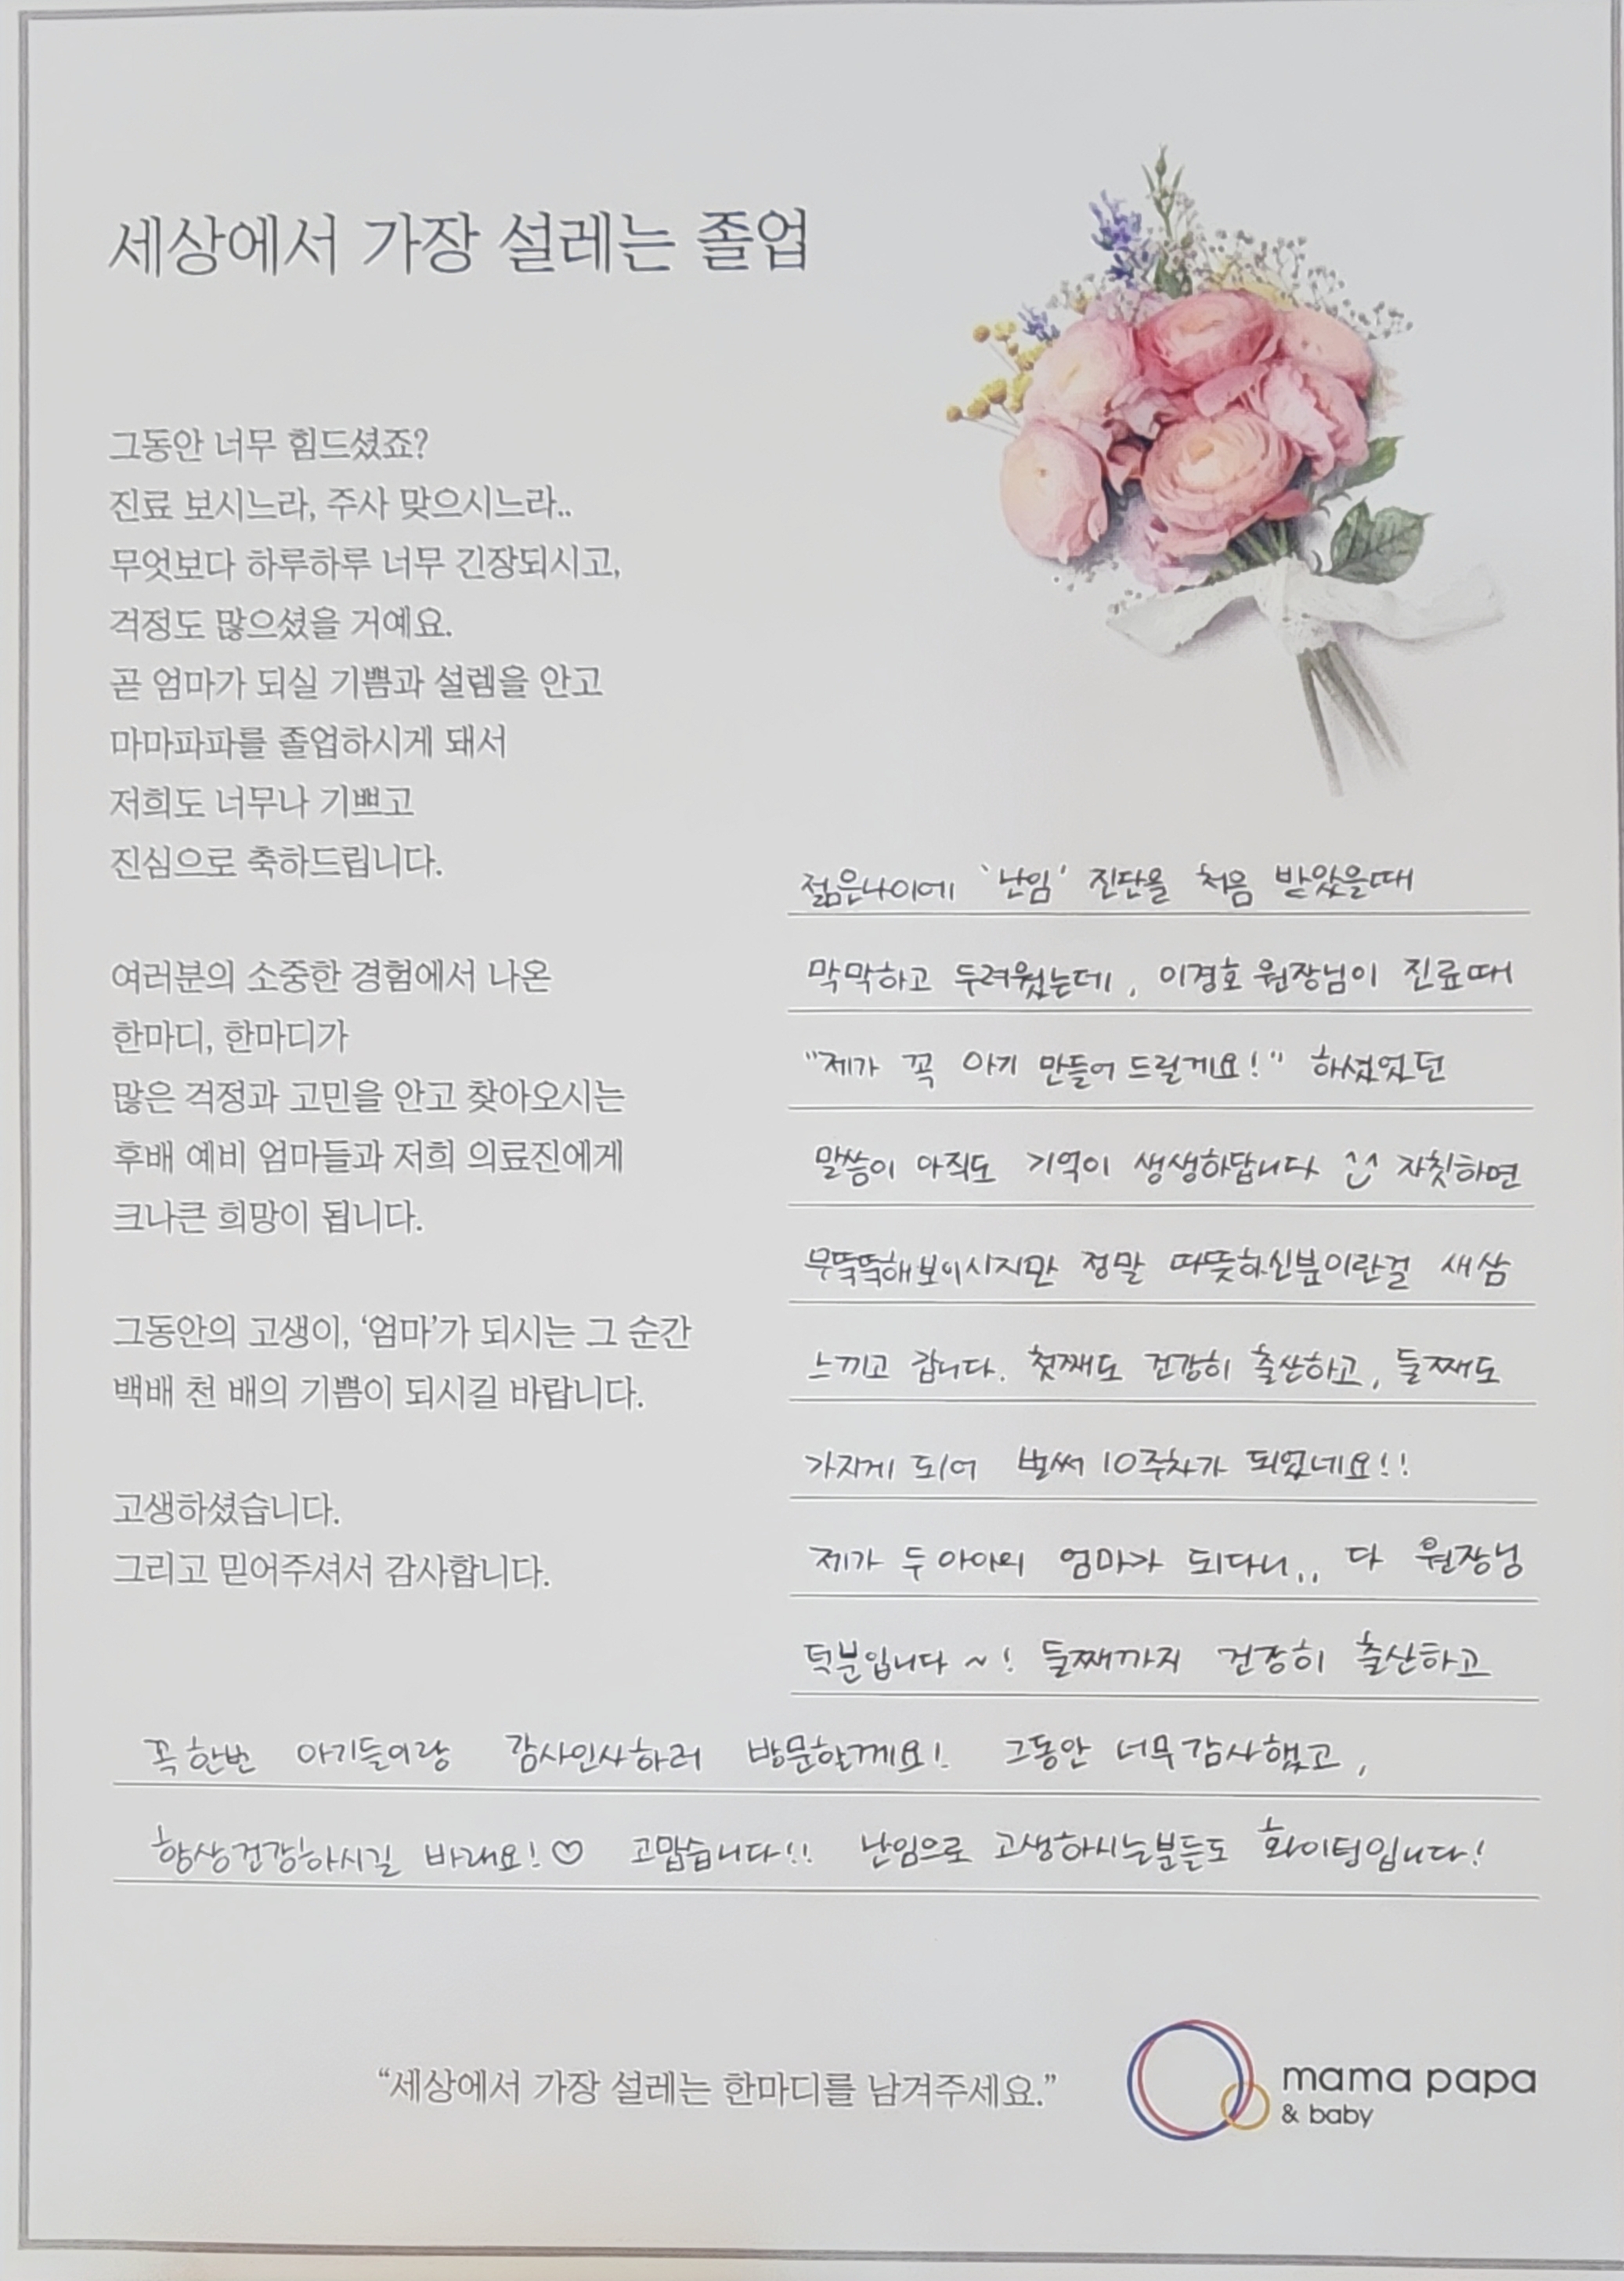 세상에서 가장 설레는 졸업
그동안 너무 힘드셨죠?
진료 보시느라, 주사 맞으시느라..
무엇보다 하루하루 너무 긴장되시고,
걱정도 많으셨을 거예요.
곧 엄마가 되실 기쁨과 설렘을 안고
마마파파를 졸업하시게 돼서
저희도 너무나 기쁘고
진심으로 축하드립니다.
여러분의 소중한 경험에서 나온
한마디, 한마디가
많은 걱정과 고민을 안고 찾아오시는
후배 예비 엄마들과 저희 의료진에게
크나큰 희망이 됩니다.
그동안의 고생이, ‘엄마’가 되시는 그 순간
백배 천 배의 기쁨이 되시길 바랍니다.
고생하셨습니다.
그리고 믿어주셔서 감사합니다.
젊은나이에 '난임' 진단을 처음 받았을때
막막하고 두려웠는데, 이경호 원장님이 진료때
"제가 꼭 아기 만들어 드릴게요!" 하셨었던
말씀이 아직도 기억이 생생하답니다 ^^ 자칫하면
무뚝뚝해보이시지만 정말 따뜻하신분이란걸 새삼
느끼고 갑니다. 첫째도 건강히 출산하고, 둘째도
가지게 되어 벌써 10주차가 되었네요!!
제가 두 아이의 엄마가 되다니.. 다 원장님
덕분입니다~! 둘째까지 건강히 출산하고
꼭한번 아기들이랑 감사인사하러 방문할께요! 그동안 너무감사했고,
항상건강하시길 바래요!♡ 고맙습니다!! 난임으로 고생하시는분들도 화이팅입니다!
“세상에서 가장 설레는 한마디를 남겨주세요.”
mama papa
& baby